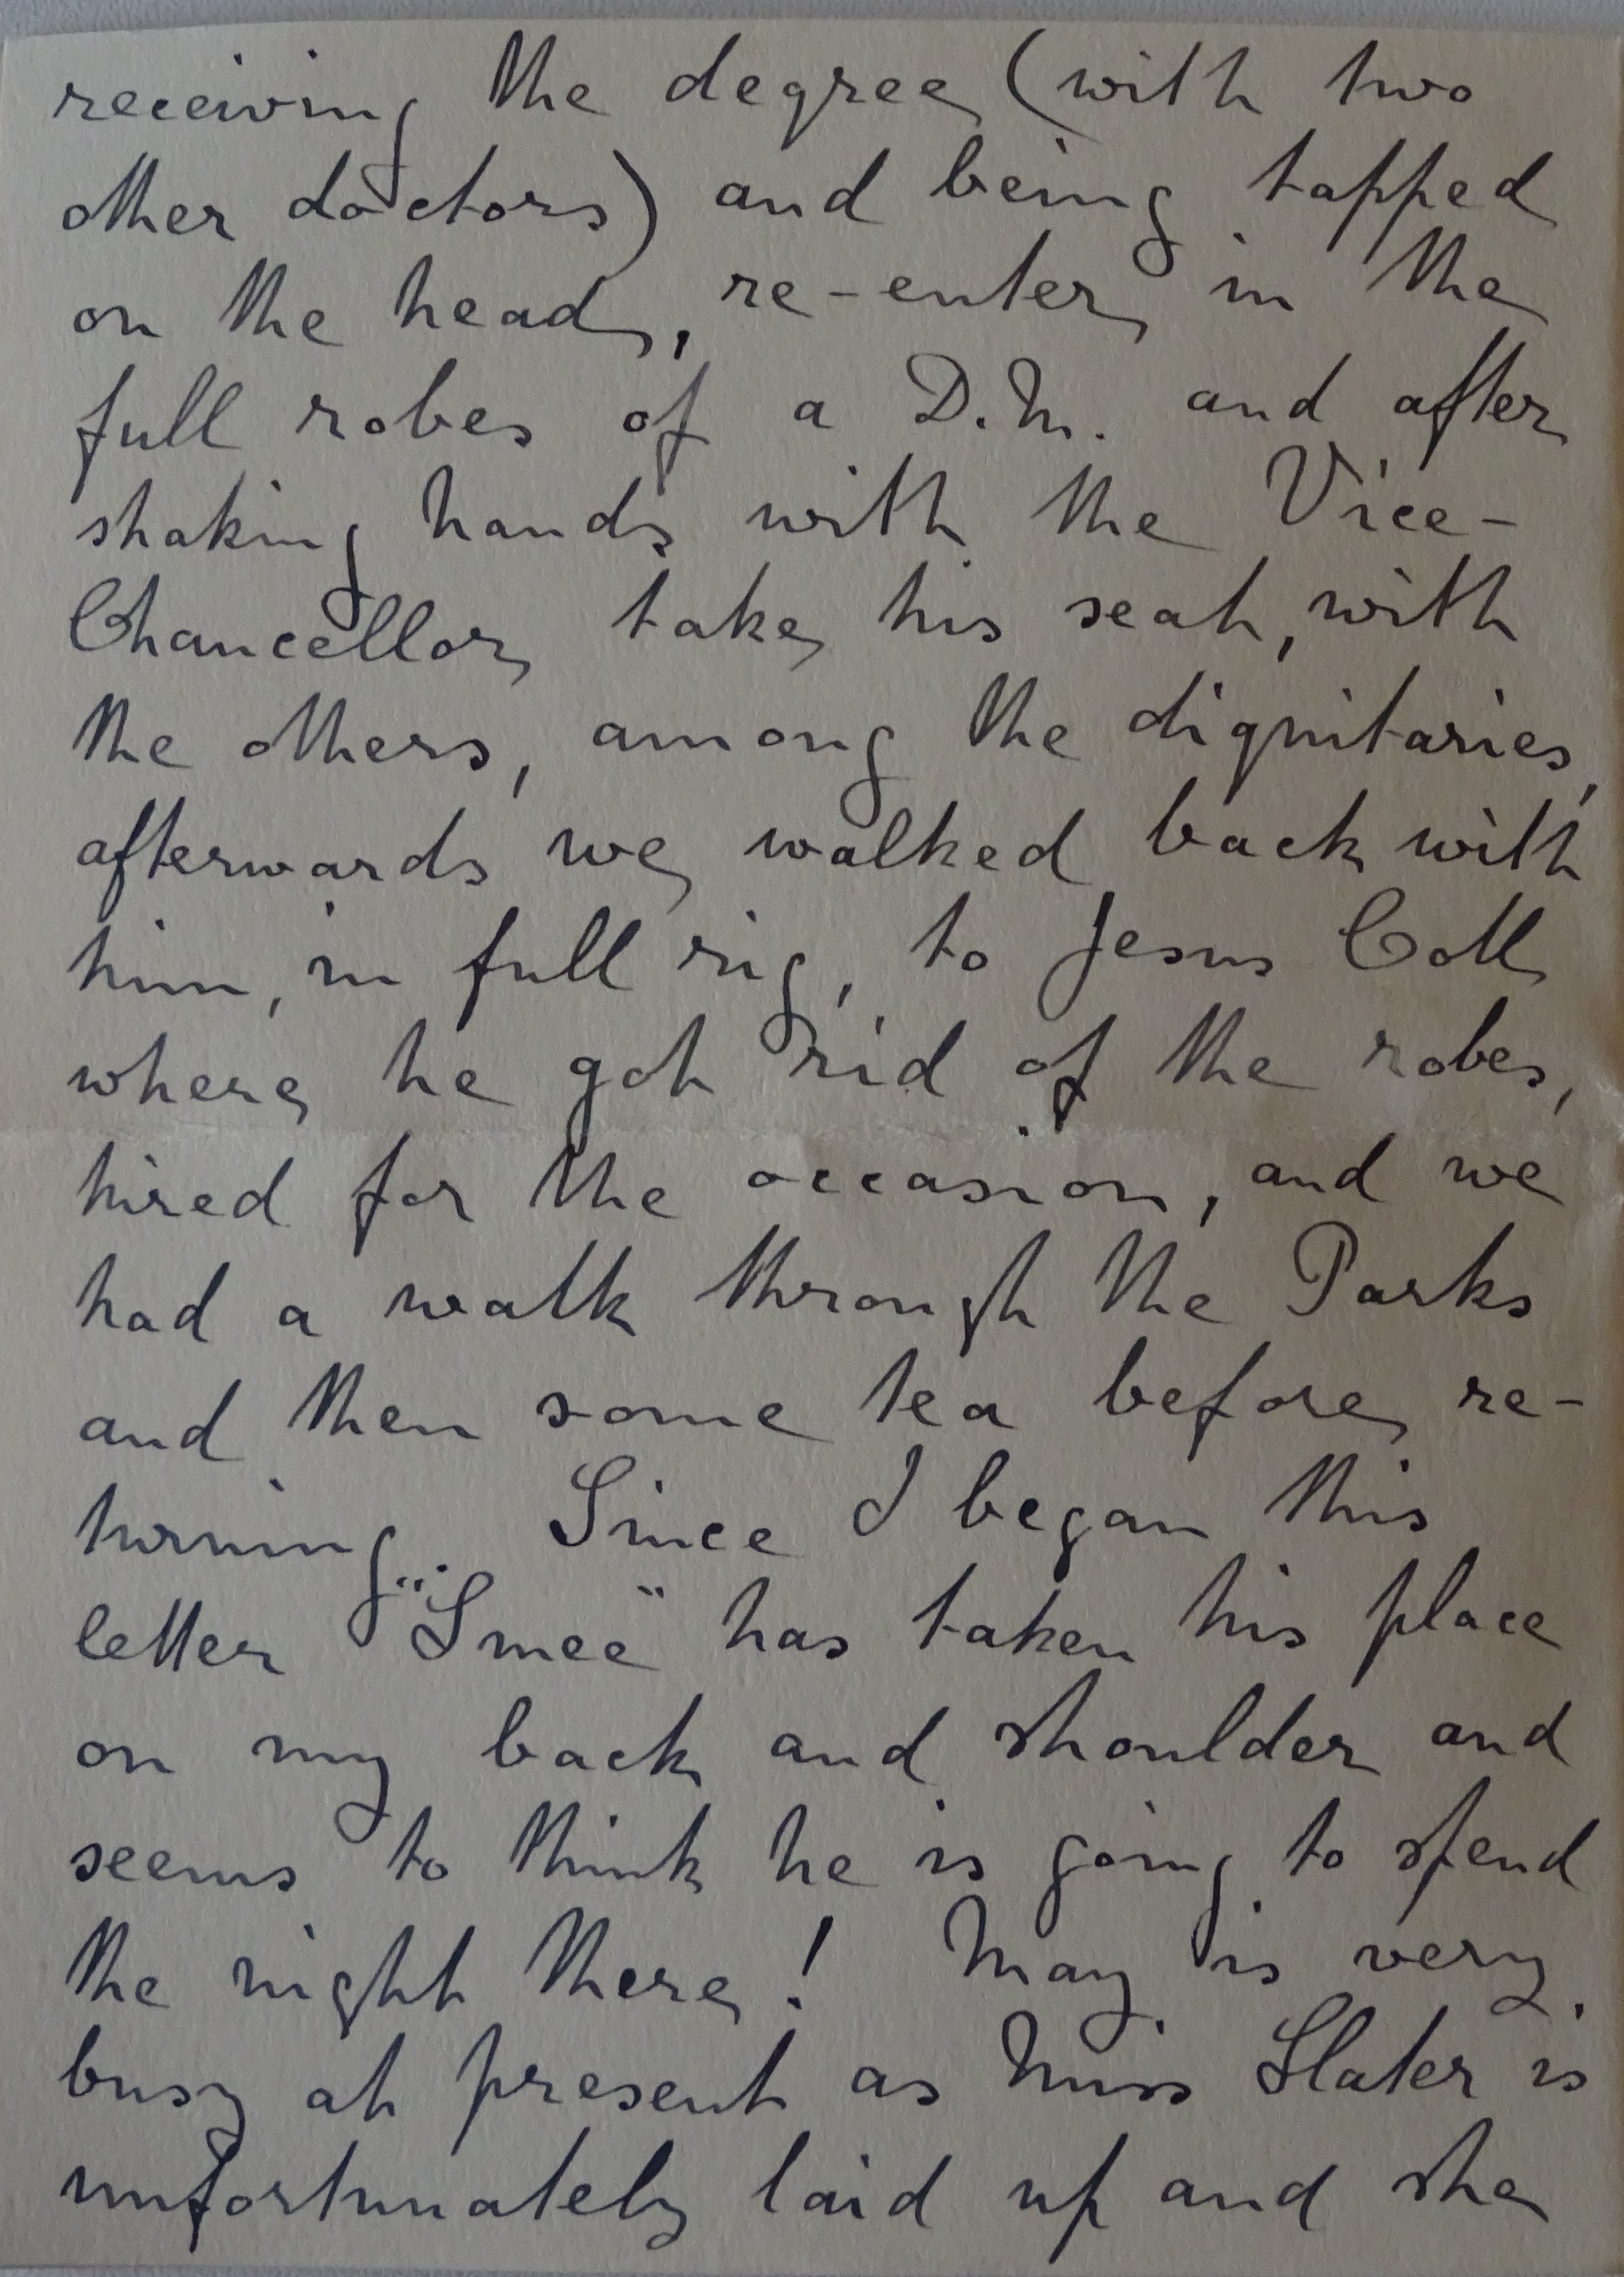 receiving the degree (with two
other doctors) and being tapped
on the head, re-enter in the
full robes of a D.M. and after
shaking hands with the Vice-
Chancellor take his seat, with
the others, among the dignitaries,
afterwards we walked back with
him, in full rig, to Jesus Coll
where he got rid of the robes,
hired for the occasion, and we
had a walk through the Parks
and then some tea before re-
turning. Since I began this
letter "Smee" has taken his place
on my back and shoulder and
seems to think he is going to spend
the night there! May is very
busy at present as Miss Slater is
unfortunately laid up and she